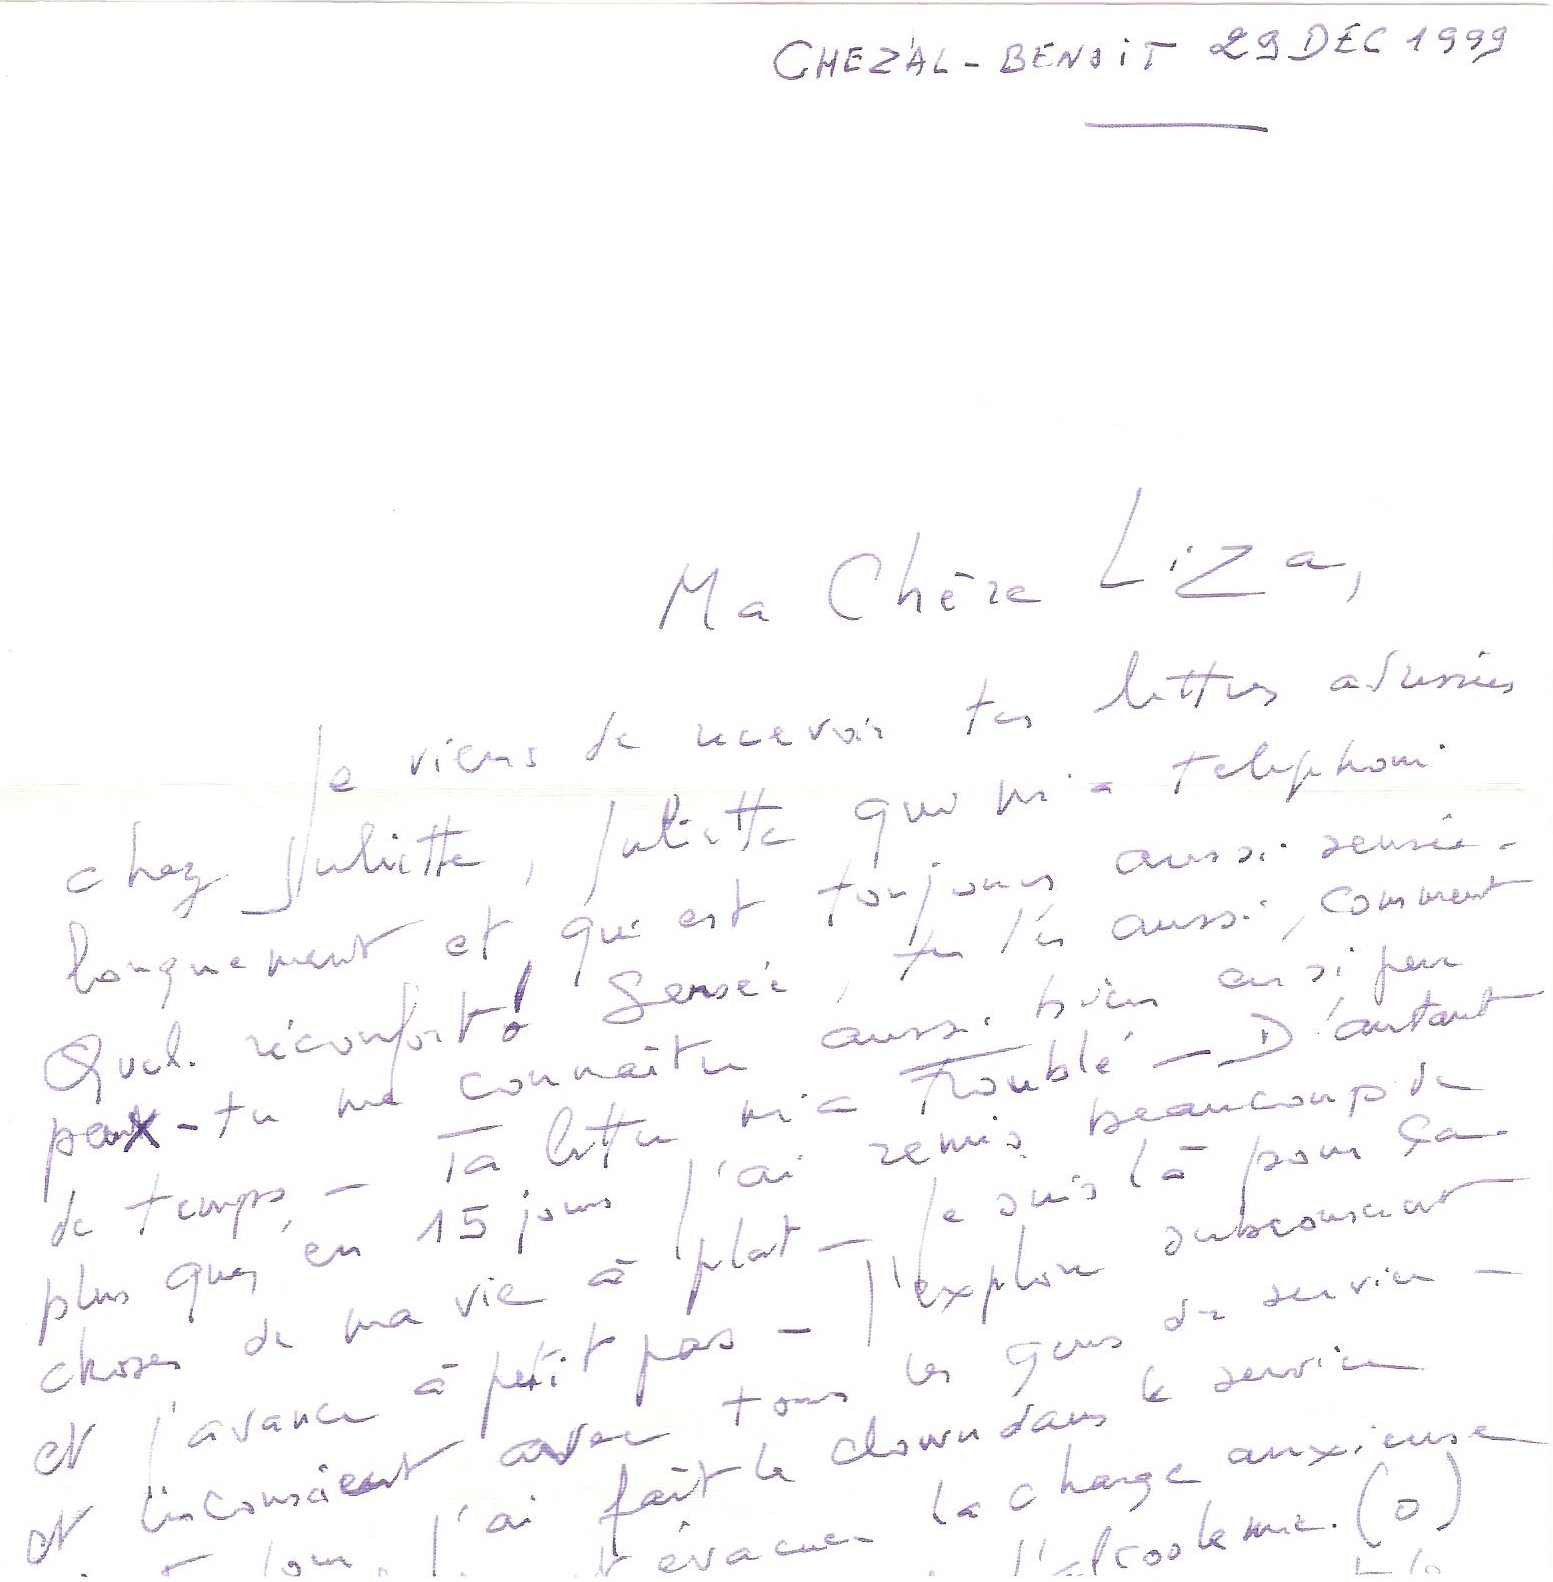 CHEZAL-BENOIT 29 DEC 1999
Ma Chère LiZa,
Je viens de recevoir tes lettres adressées
chez Juliette, Juliette qui m'a telephoné
longuement et qui est toujours aussi sensée.
Quel réconfort! Sensée, tu l'es aussi, comment
peux-tu me connaître aussi bien en si peu
de temps - Ta lettre m'a troublé - D'autant
plus que, en 15 jours j'ai remis beaucoup de
choses de ma vie à plat - Je suis là pour ça.
et j'avance à petit pas - J'explore subconscient
et inconscient avec tous les gens du service -
j'ai fait le clown dans le service
évacuer la charge anxieuse
l'alcoolemie. (0)